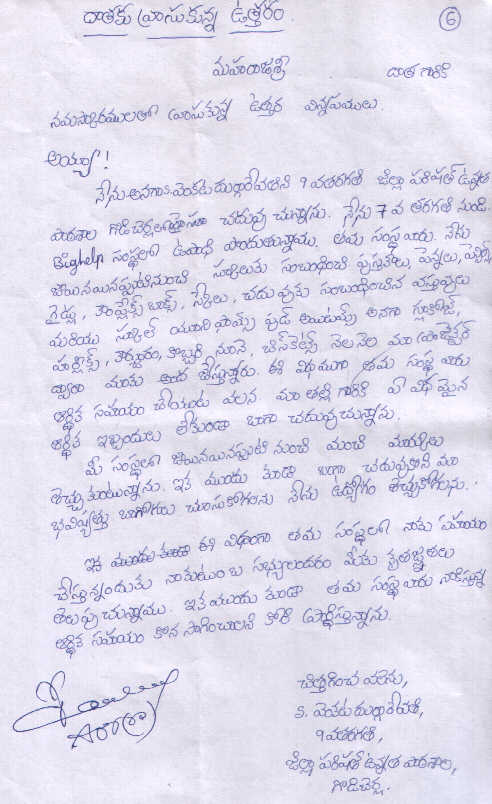 దాతకు వ్రాసుకున్న ఉత్తరం.
6
మహారాజశ్రీ దాత గారికి
నమస్కారములతో వ్రాసుకున్న ఉత్తర విన్నపములు.
అయ్యా!
నేను అనగా S. వెంకట దుర్గా రేవతి 9 వతరగతి జిల్లా పరిషత్ ఉన్నత
పాఠశాల గొడిచెర్ల చదువు చున్నాను. నేను 7 వ తరగతి నుండి
Bighelp సంస్థలో ఉపాధి పొందుతున్నాను. తమ సంస్థ వారు నేను
జాయినయినప్పటినుంచి స్కూలుకు సంబంధించి పుస్తకాలు, పెన్నులు, పెన్సిల్స్
గైడ్లు, కాంప్లెక్స్ బాక్స్, స్కేలు, చదువుకు సంబంధించిన వస్తువులు
మరియు స్కూల్ యూనిఫామ్స్ ఫుడ్ అయిటమ్స్ అనగా గ్లూకోజ్,
హార్లిక్స్, ఖర్జూరం, కొబ్బరి నూనె, బిస్కెట్స్ నెల నెల మా
ద్వారా మాకు అంద చేస్తున్నారు. ఈ విధముగా తమ సంస్థ వారు
ఆర్థిక సహాయం చేయుట వలన మా తల్లి గారికి ఏ విధ మైన
ఆర్థిక ఇబ్బందులు లేకుండా బాగా చదువుచున్నాను.
మీ సంస్థలో జాయినయినప్పటి నుంచి మంచి మార్కులు
తెచ్చుకుంటున్నాను. ఇక ముందు కూడా బాగా చదువుకొని మా
భవిష్యత్తు బాగోగులు చూసుకోగలను నేను ఉద్యోగం తెచ్చుకోగలను.
ఇక ముందు కూడా ఈ విధంగా తమ సంస్థలో నాకు సహాయం
చేస్తున్నందుకు నా కుటుంబ సభ్యులందరం మీకు కృతజ్ఞతలు
తెలుపు చున్నాము. ఇక ముందు కూడా తమ సంస్థ వారు నాకిస్తున్న
ఆర్థిక సహాయం కొన సాగించాలని కోరి ప్రార్థిస్తున్నాను.
చిత్తగించ వలెను,
S. వెంకట దుర్గా రేవతి,
9 వతరగతి,
జిల్లా పరిషత్ ఉన్నత పాఠశాల,
గొడిచెర్ల.